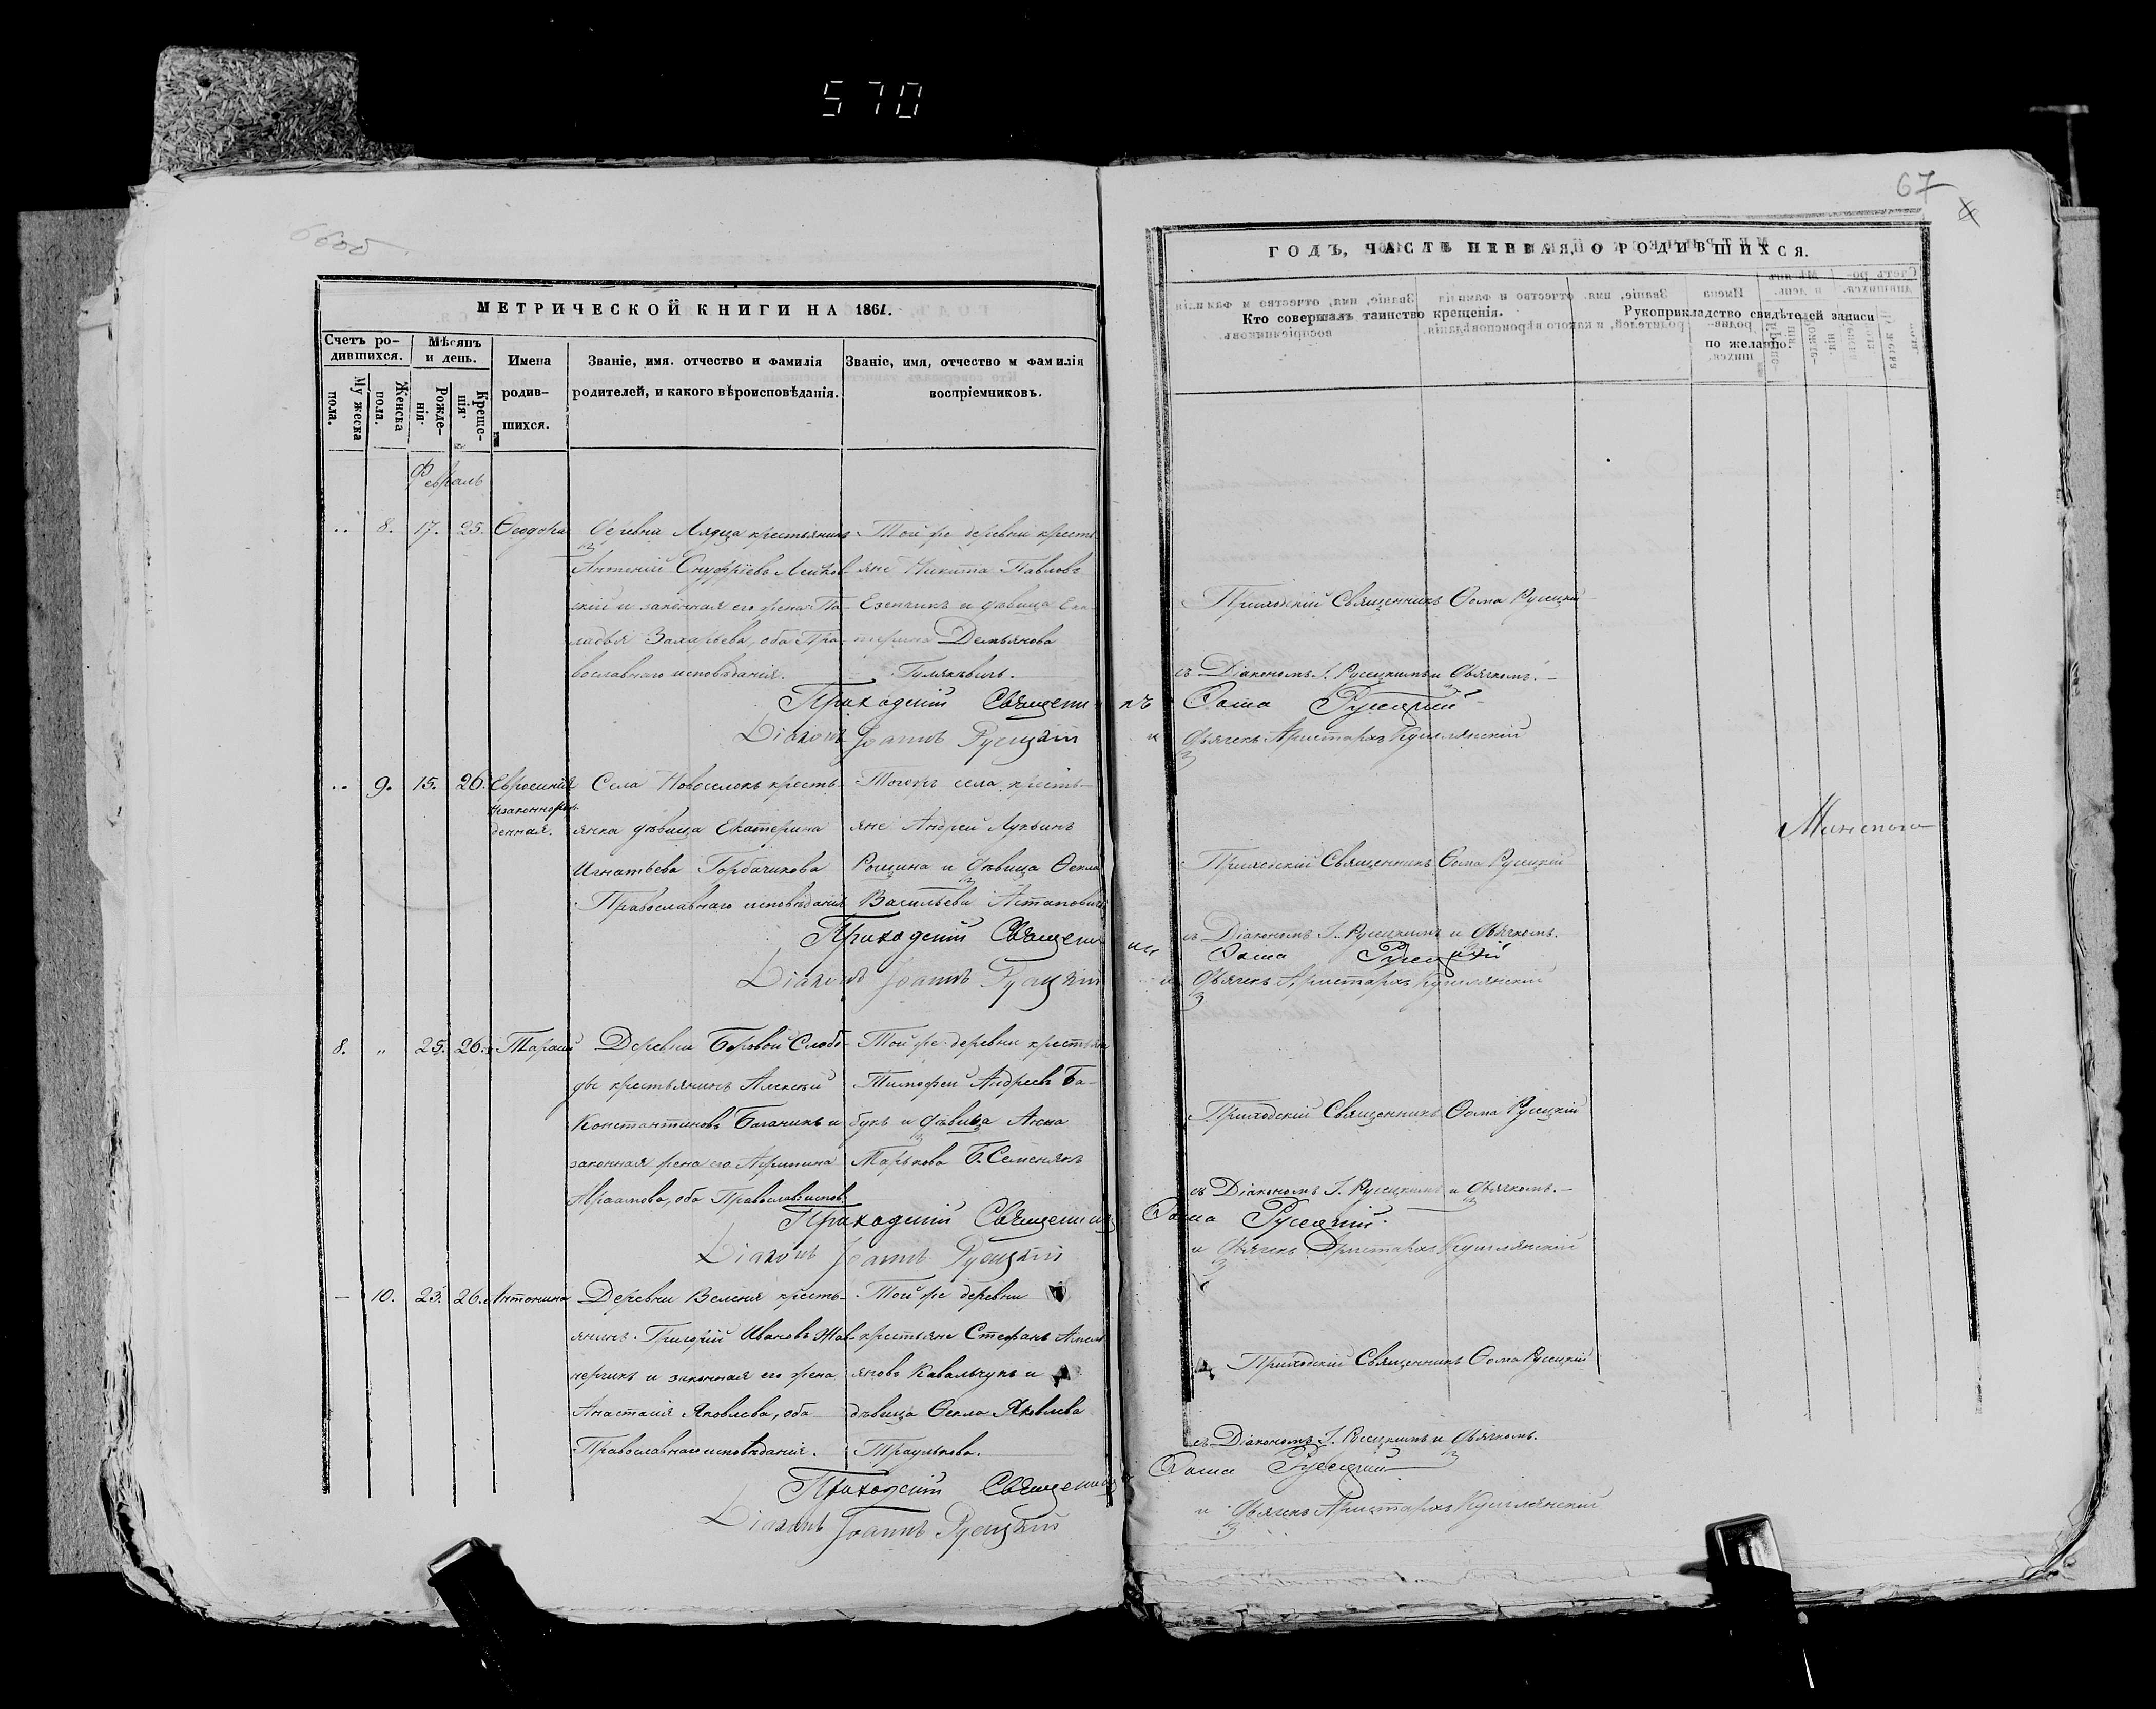 570
67
МЕТРИЧЕСКОЙ КНИГИ НА 1861.
ГОДЪ, ЧАСТЬ ПЕРВАЯ, О РОДИВШИХСЯ.
Счетъ ро-
дившихся.
Мѣсяцъ
и день.
Имена
родив-
шихся.
Званіе, имя. отчество и фамилія
родителей, и какого вѣроисповѣданія.
Званіе, имя, отчество и фамилія
воспріемниковъ.
Му жеска
пола.
Женска
пола.
Рожде-
нія
Креще-
нія
Кто совершалъ таинство крещенія.
Рукоприкладство свидѣтелей записи
по желанію.
Февраль
8. 17. 25. Ѳеодора
Деревни Лядца крестьянинъ
Антоній Онуфріевъ
скій и законная его жена Па-
ладья Захарьева, оба Пра-
вославнаго исповѣданія.
Той же деревни кресть
яне Никита Павловъ
и дѣвица Ека
терина Демьянова
Приходскій Священникъ Ѳома Русецкій
съ Діакономъ І. Русецкимъ и Дьячкомъ.
Приходскій Священникъ Ѳома Русецкій
Діаконъ Іоаннъ Русецкій
и Дьячекъ Аристархъ
9. 15. 26. Евросинія
незаконнорож
денная.
Села Новоселокъ кресть-
янка дѣвица Екатерина
Игнатьева Горбачикова
Православнаго исповѣданія
Тогожъ села кресть-
яне Андрей Лукьинъ
Рощина и дѣвица Ѳекла
Васильева Астаповичъ
Минского
Приходскій Священникъ Ѳома Русецкій
съ Діакономъ І. Русецкимъ и Дьячкомъ.
Приходскій Священни
Ѳома Русецкій
Діаконъ Іоаннъ Русецкій
и Дьячекъ Аристархъ
8. " 25. 26. Тарасій
Деревни Боровой Слобо-
ды крестьянинъ Алексѣй
Константиновъ Баганикъ и
законная жена его
Авраамова, оба Православ: испов:
Той же деревни крестьяне
Тимофей Андреевъ Ба-
букъ и дѣвица Анна
Марькова Б. Семенякъ
Приходскій Священникъ Ѳома Русецкій
съ Діакономъ І. Русецкимъ и Дьячкомъ.
Приходскій Священникъ Ѳома Русецкій.
Діаконъ Іоаннъ Русецкій
и Дьячекъ Аристархъ
10. 23. 26. Антонина
Деревни Веленя кресть-
янинъ Григорій Ивановъ Жав
нерчикъ и законная его жена
Анастасія Яковлева, оба
Православнаго исповѣданія.
Той же деревни
крестьяне Стефанъ
яновъ Кавальчукъ и
дѣвица Ѳекла Яковлева
Траулькова.
Приходскій Священникъ Ѳома Русецкій
съ Діакономъ І. Русецкимъ и Дьячкомъ.
Приходскій Священникъ Ѳома Русецкій
Діаконъ Іоаннъ Русецкій
и Дьячекъ Аристархъ